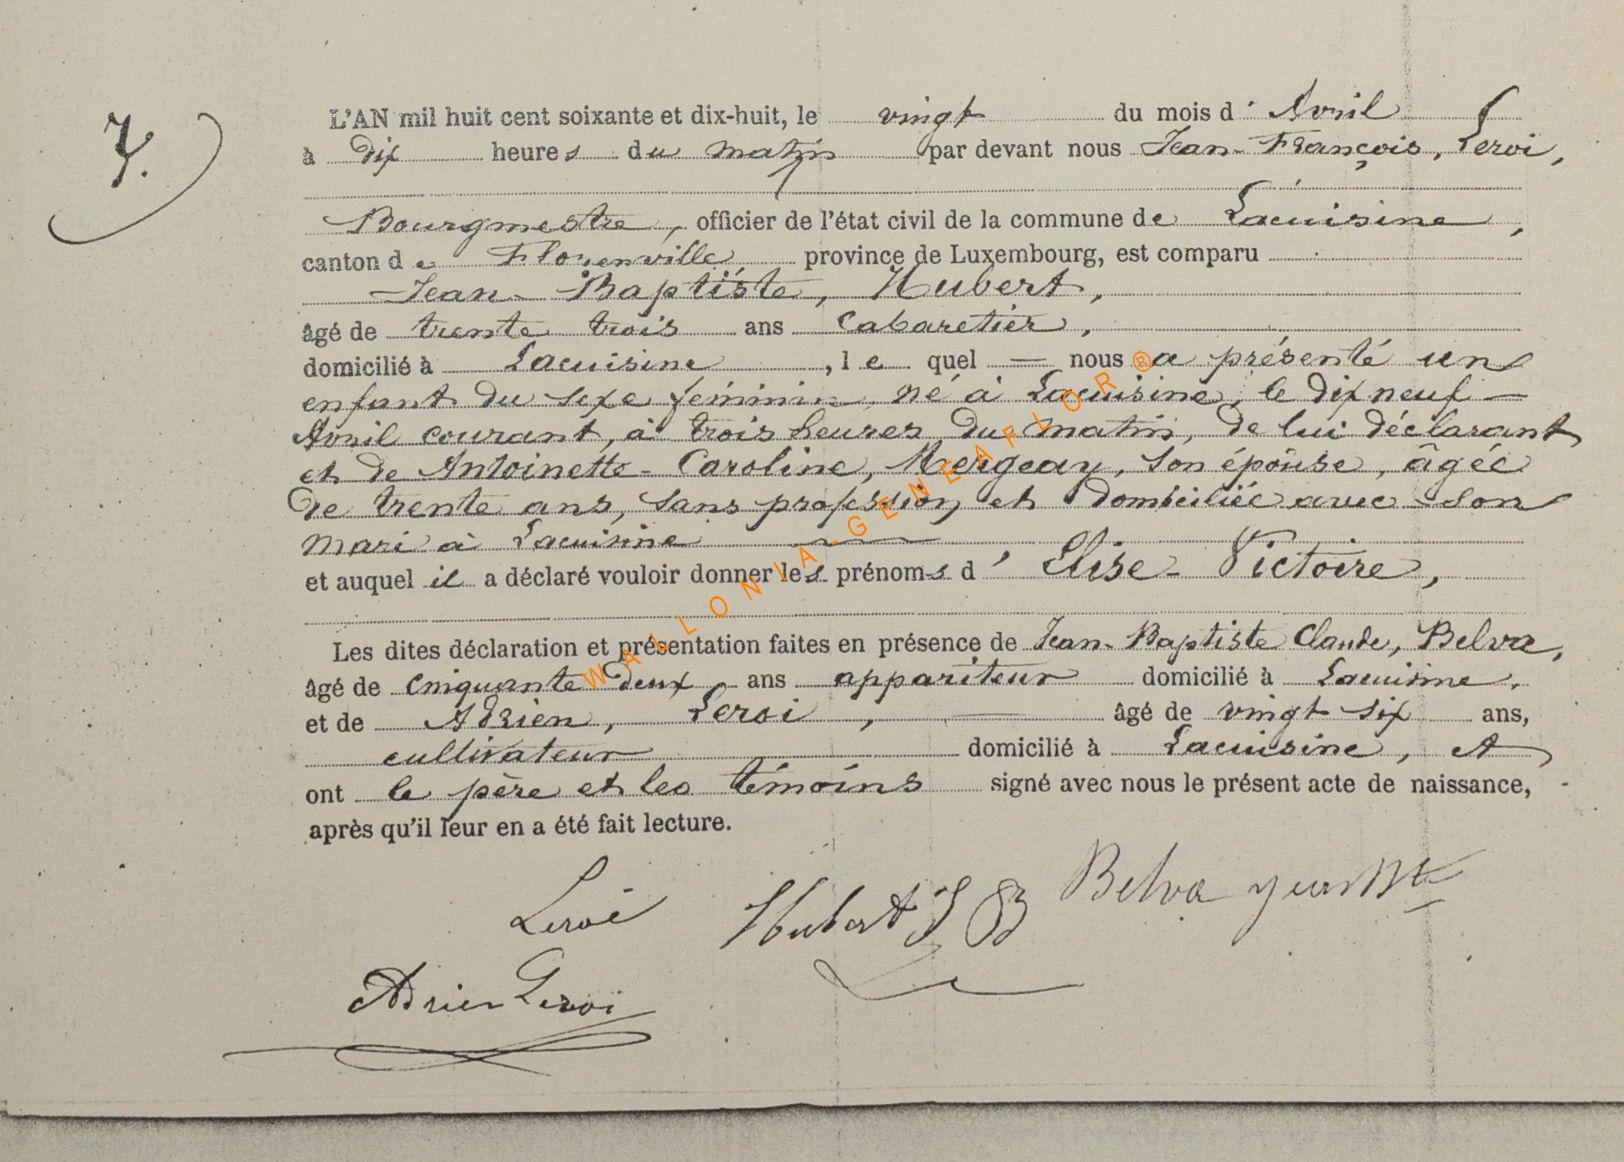 7.
L'AN mil huit cent soixante et dix-huit, le vingt du mois d' Avril
à dix heures du matin par devant nous Jean-François, Leroi,
Bourgmestre, officier de l'état civil de la commune de Lacuisine,
canton de Florenville province de Luxembourg, est comparu
Jean-Baptiste, Hubert,
âgé de trente trois ans Cabaretier,
domicilié à Lacuisine, le quel — nous a présenté un
enfant du sexe féminin, né à Lacuisine, le dix neuf —
Avril courant, à trois heures du matin, de lui déclarant
et de Antoinette-Caroline, Mergeay, son épouse, âgée
de trente ans, sans profession, et domiciliée avec son
mari à Lacuisine
et auquel il a déclaré vouloir donner les prénoms d' Elise-Victoire,
Les dites déclaration et présentation faites en présence de Jean-Baptiste Claude, Belva,
âgé de cinquante deux ans appariteur domicilié à Lacuisine,
et de Adrien, Leroi, — âgé de vingt six ans,
cultivateur domicilié à Lacuisine, et
ont le père et les témoins signé avec nous le présent acte de naissance,
après qu'il leur en a été fait lecture.
Leroi Hubert J B Belva
Adrien Leroi
WALLONIA-GENEAFLOR®